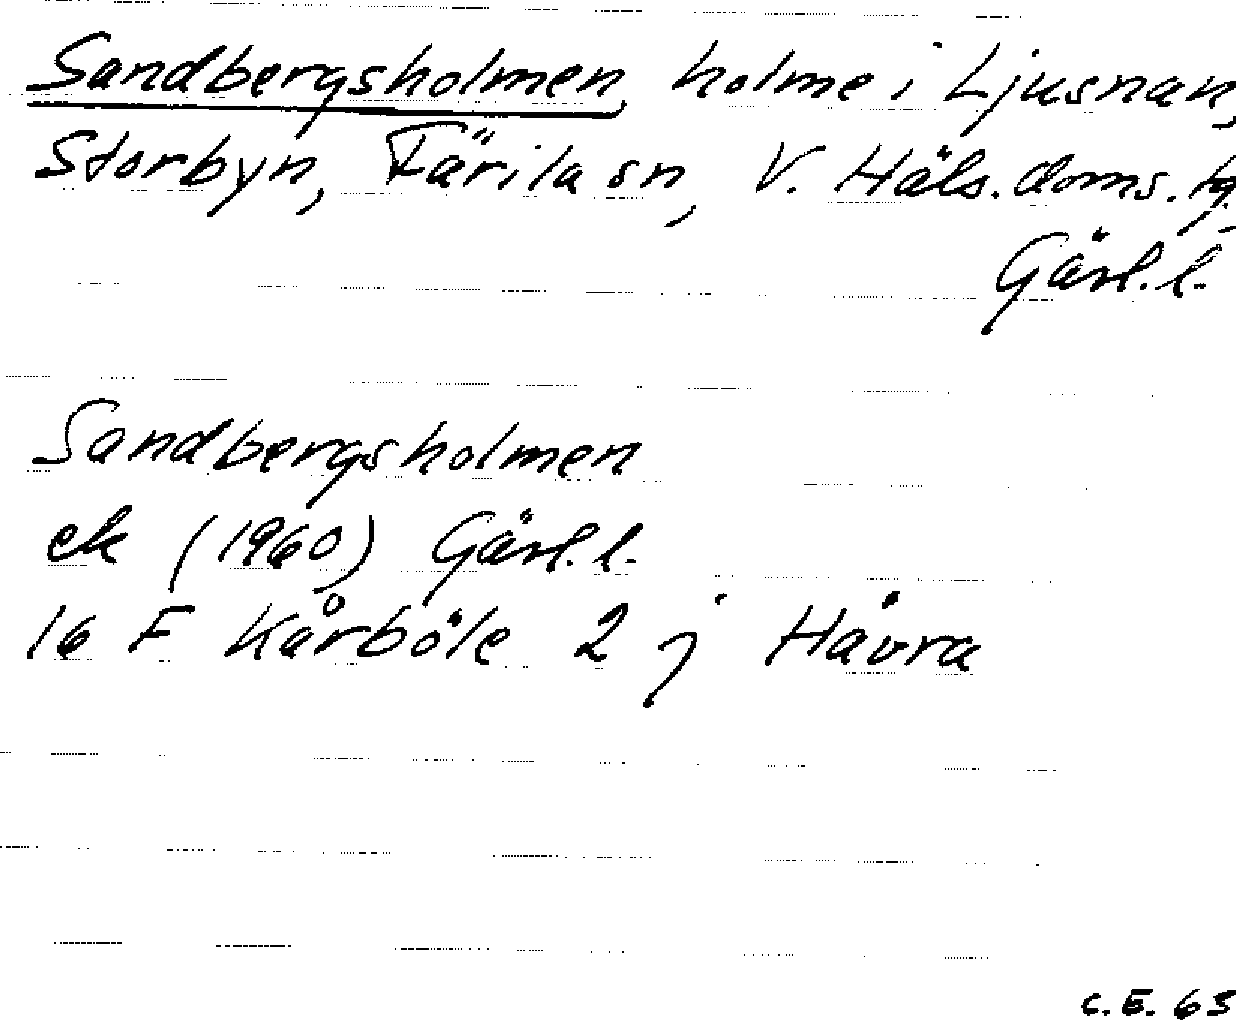 Sandbergsholmen, holme i Ljusnan,
Storbyn, Färila sn, V. Häls. doms. tg.
Gävl. l.
Sandbergsholmen
ek (1960) Gävl. l.
16 F Kårböle 2 j Håvra
C.E. 63